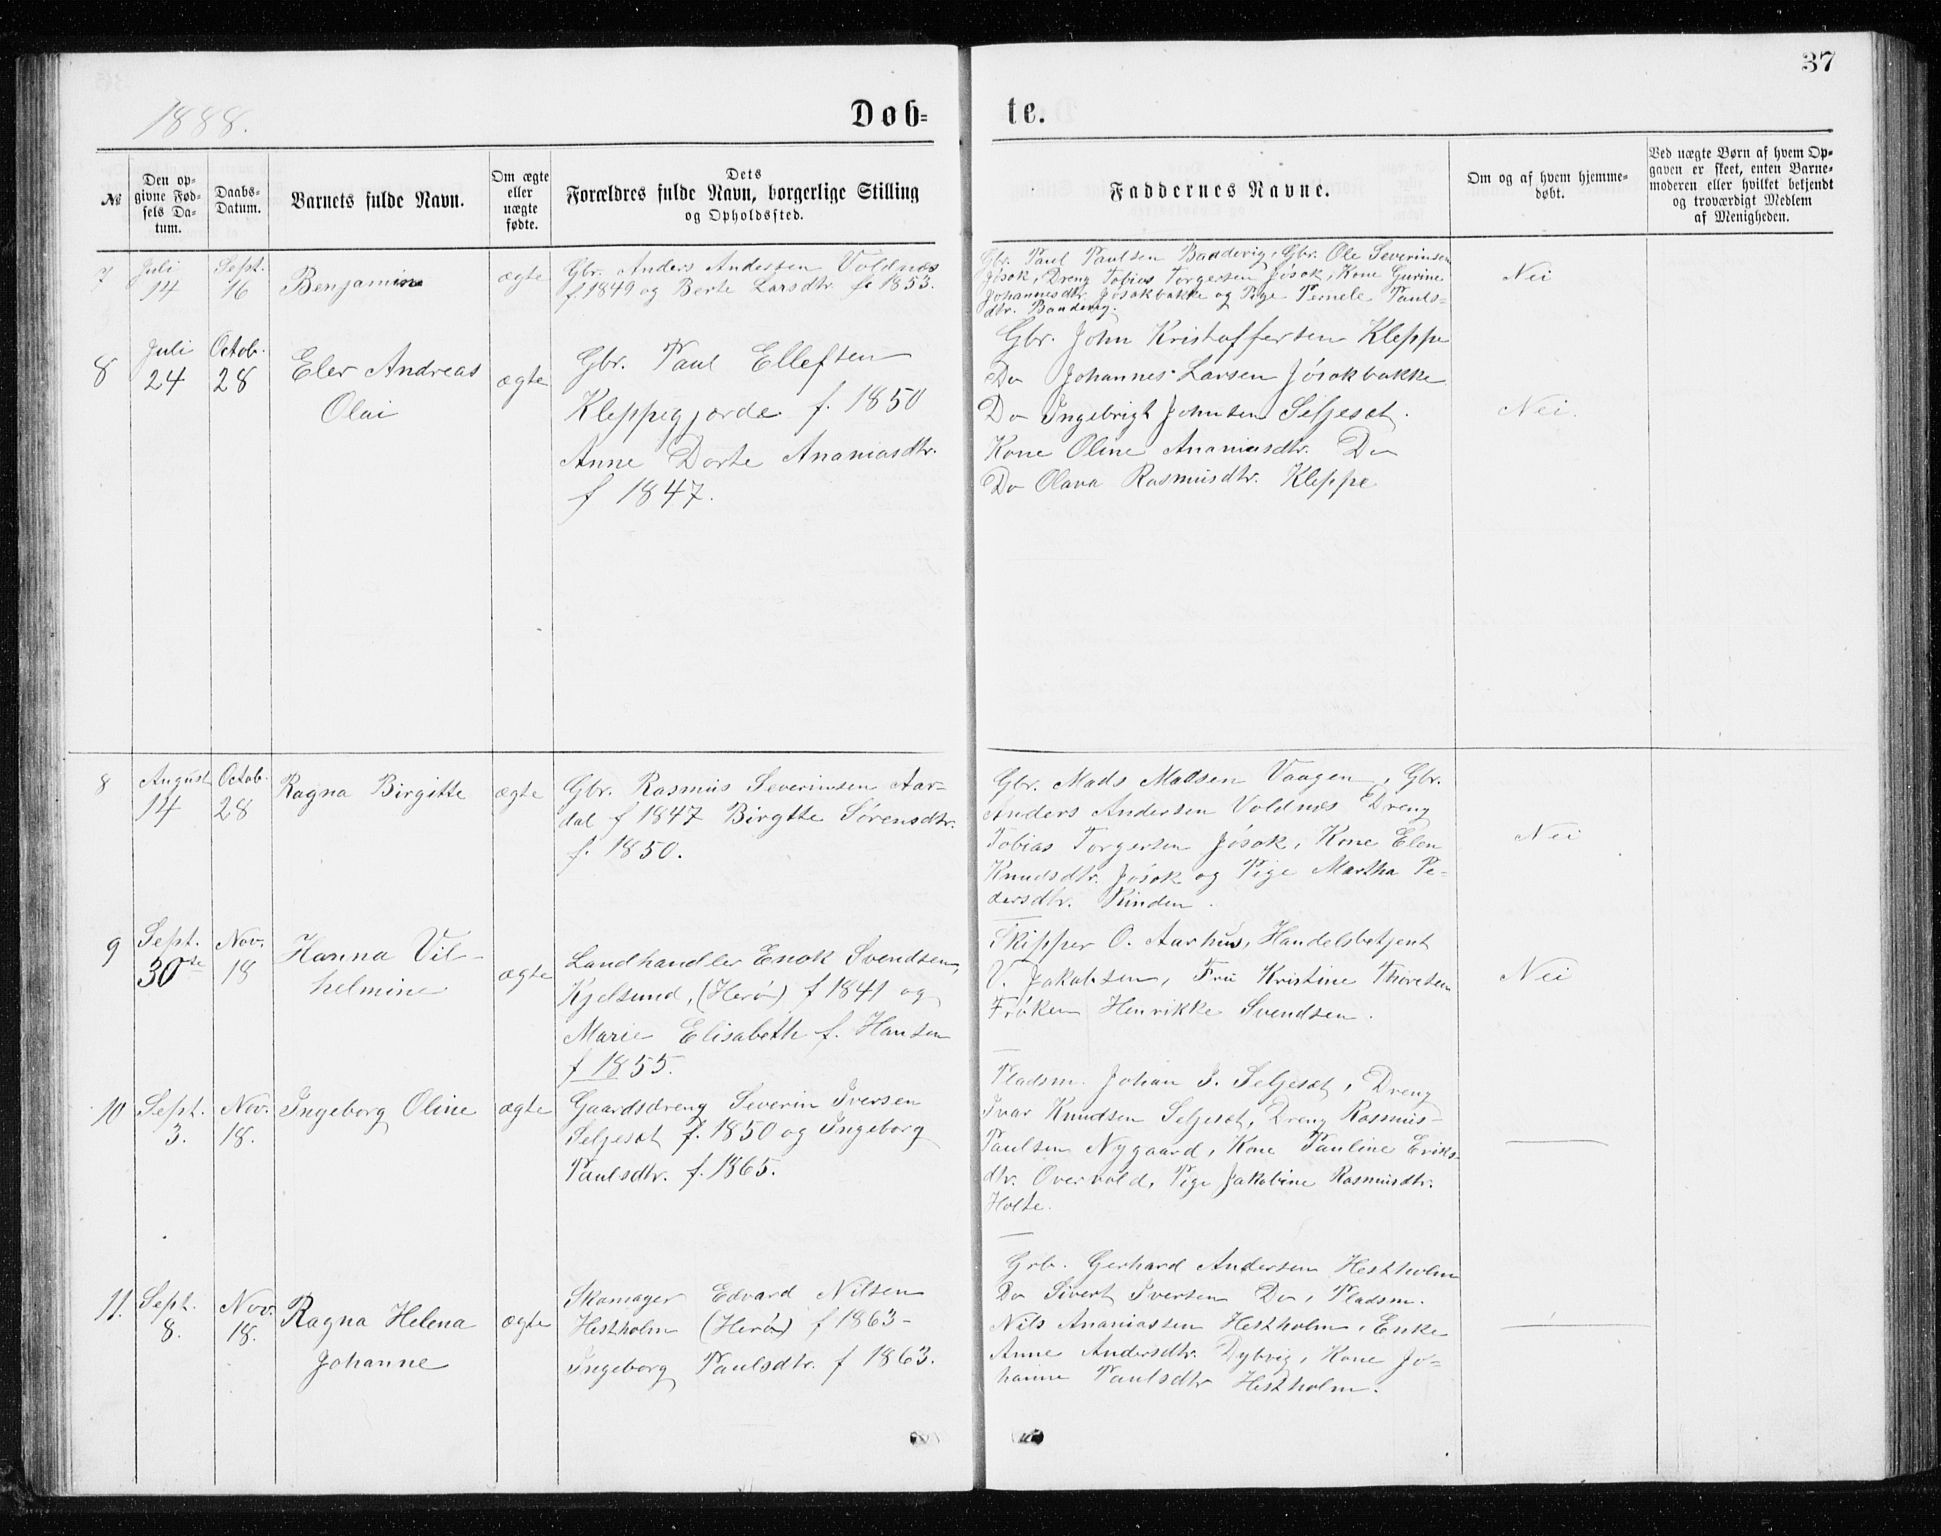 37
1888.
Døb=
te.
№
Den op=
givne Fød=
sels Da=
tum.
Daabs=
Datum.
Barnets fulde Navn.
Om ægte
eller
uægte
fødte.
Dets
Forældres fulde Navn, borgerlige Stilling
og Opholdssted.
Faddernes Navne.
Om og af hvem hjemme=
døbt.
Ved uægte Børn af hvem Op=
gaven er skeet, enten Barne=
moderen eller hvilket bekjendt
og troværdigt Medlem
af Menigheden.
7
Juli
14
Sept.
16
Benjamin
ægte
Gbr. Anders Andersen Voldnæs
f. 1849 og Berte Larsdtr. f. 1853.
Gbr. Paul Paulsen Baadevig, Gbr. Ole Severinsen
Jøsok, Dreng Tobias Torgersen Jøsok, Kone Gurine
Johannesdtr. Jøsokbakke og Pige Pernele Pauls=
dtr. Baadevig.
Nei
8
Juli
24
Octob.
28
Eler Andreas
Olai
ægte
Gbr. Paul Ellefsen
Kleppegjørde f. 1850
Anne Dorte Ananiasdtr.
f 1847.
Gbr. John Kristoffersen Kleppe
Do Johannes Larsen Jøsokbakke
Do Ingebrigt Johnsen Seljeset.
Kone Oline Ananiasdtr. Do
Do Olava Rasmusdtr. Kleppe
Nei.
8
August
14
Octob.
28
Ragna Birgitte
ægte
Gbr. Rasmus Severinsen Aar-
dal f 1847 Birgitte Sørensdtr.
f. 1850.
Gbr. Mads Madsen Vaagen, Gbr.
Anders Andersen Voldnæs Dreng
Tobias Torgersen Jøsok, Kone Elen
Knudsdtr. Jøsok og Pige Martha Pe-
dersdtr. Rinden.
Nei
9
Sept.
30te
Nov.
18
Hanna Vil-
helmine
ægte
Landhandler Enok Svendsen,
Kjelsund, (Herø) f 1841 og
Marie Elisabeth f. Hansen
f 1855.
Skipper O. Aarhus, Handelsbetjent
V. Jakobsen, Fru Kristine Thoresen
Frøken Henrikke Svendsen.
Nei
10
Sept.
3.
Nov.
18.
Ingeborg Oline
ægte
Gaardsdreng Severin Iversen
Seljeset f. 1850 og Ingeborg
Paulsdtr. f. 1865.
Pladsm. Johan I. Seljeset, Dreng
Ivar Knudsen Seljeset, Dreng Rasmus-
Paulsen Nygaard, Kone Pauline Eriks-
dtr. Overvold, Pige Jakobine Rasmusdtr.
Holte.
11.
Sept.
8.
Nov.
18.
Ragna Helena
Johanne
ægte
Skomager Edvard Nilsen
Hestholm (Herø) f 1863-
Ingeborg Paulsdtr. f 1863.
Grb. Gerhard Andersen Hestholm
Do Sivert Iversen Do, Pladsm.
Nils Ananiassen Hestholm, Enke
Anne Andersdtr. Dybvig, Kone Jo-
hanne Paulsdtr Hestholm.